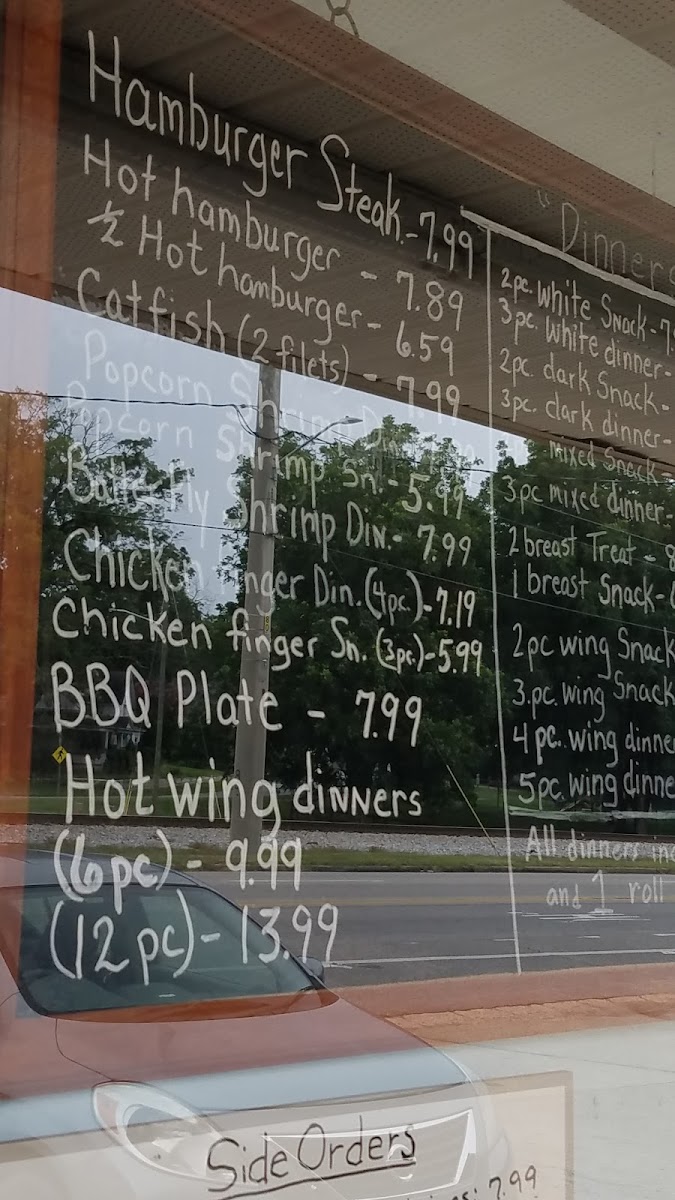 Hamburger Steak - 7.99
Hot hamburger - 7.89
½ Hot hamburger - 6.59
Catfish (2 filets) - 7.99
Popcorn Shrimp Din
Popcorn Shrimp Sn. - 5.99
Butterfly Shrimp Din. - 7.99
Chicken finger Din. (4pc.) - 7.19
Chicken finger Sn. (3pc.) - 5.99
BBQ Plate - 7.99
Hot wing dinners
(6 pc) - 9.99
(12 pc) - 13.99
"Dinners
2pc. white Snack - 7
3pc. white dinner -
2pc. dark Snack -
3pc. dark dinner -
mixed Snack
3pc mixed dinner -
2 breast Treat - 8
1 breast Snack -
2pc wing Snack
3.pc. wing Snack
4 pc. wing dinne
5pc. wing dinne
All dinners inc
and 1 roll
Side Orders
7.99